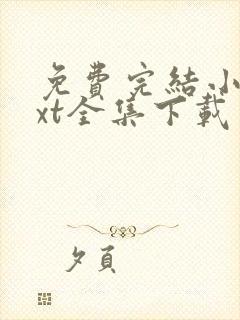 免費完結小
xt全集下載
夕頁